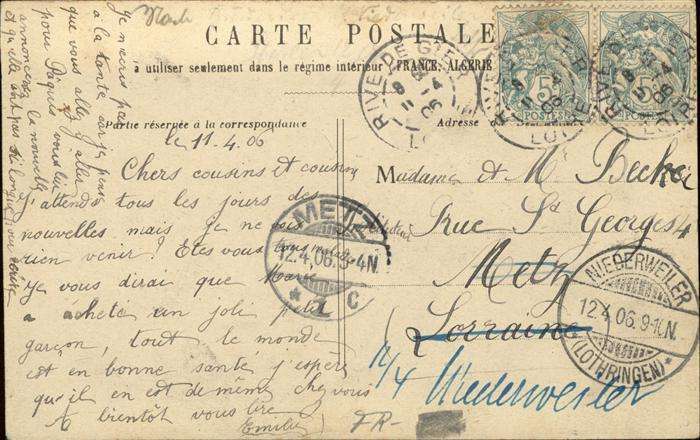 CARTE POSTALE
à utiliser seulement dans le régime intérieur (FRANCE, ALGÉRIE
Partie réservée à la correspondance
Adresse du
le 11.4.06
Chers cousins et cousin
J'attends tous les jours des
nouvelles mais je ne vois
rien venir? Etes vous tous
Je vous dirai que Marie
a acheté un joli petit
garçon, tout le monde
est en bonne santé j'espère
qu'il en est de même chez vous
A bientôt vous lire
Emilie
Je n'écris pas
à la tante
que vous allez y aller
pour Pâques vous lui
annoncerez la nouvelle
Madame et M. Becker
Rue St Georges 4
Metz
Lorraine
12/4 Niederweiler
FR-
RIVE DE GIER
11 4 06
LOIRE
5
POSTES
5
POSTES
RIVE DE GIER
LOIRE
METZ
12.4.06.3-4N.
* 1 C
NIEDERWEILER
12.4.06.9-10N.
* (LOTHRINGEN) *